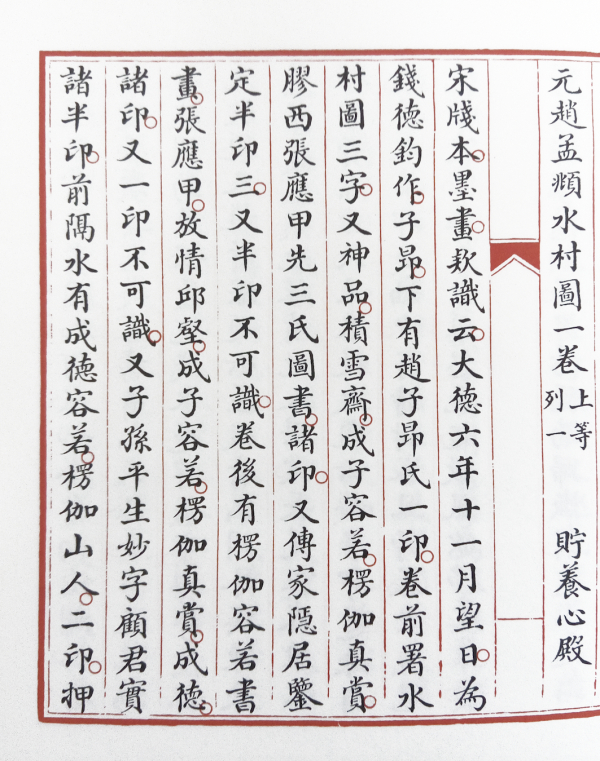 元趙孟頫水村圖一卷 上等 列一 貯養心殿
宋牋本。墨畫。欵識云。大德六年十一月望日。為
錢德鈞作。子昂。下有趙子昂氏一印。卷前署水
村圖三字。又神品。積雪齋。成子容若。楞伽真賞。
膠西張應甲先三氏圖書。諸印。又傳家隱居鑒
定半印三。又半印不可識。卷後有楞伽容若書
畫。張應甲。放情邱壑。成子容若。楞伽真賞。成德。
諸印。又一印不可識。又子孫平生妙字顧君實
諸半印。前隔水有成德容若。楞伽山人。二印。押